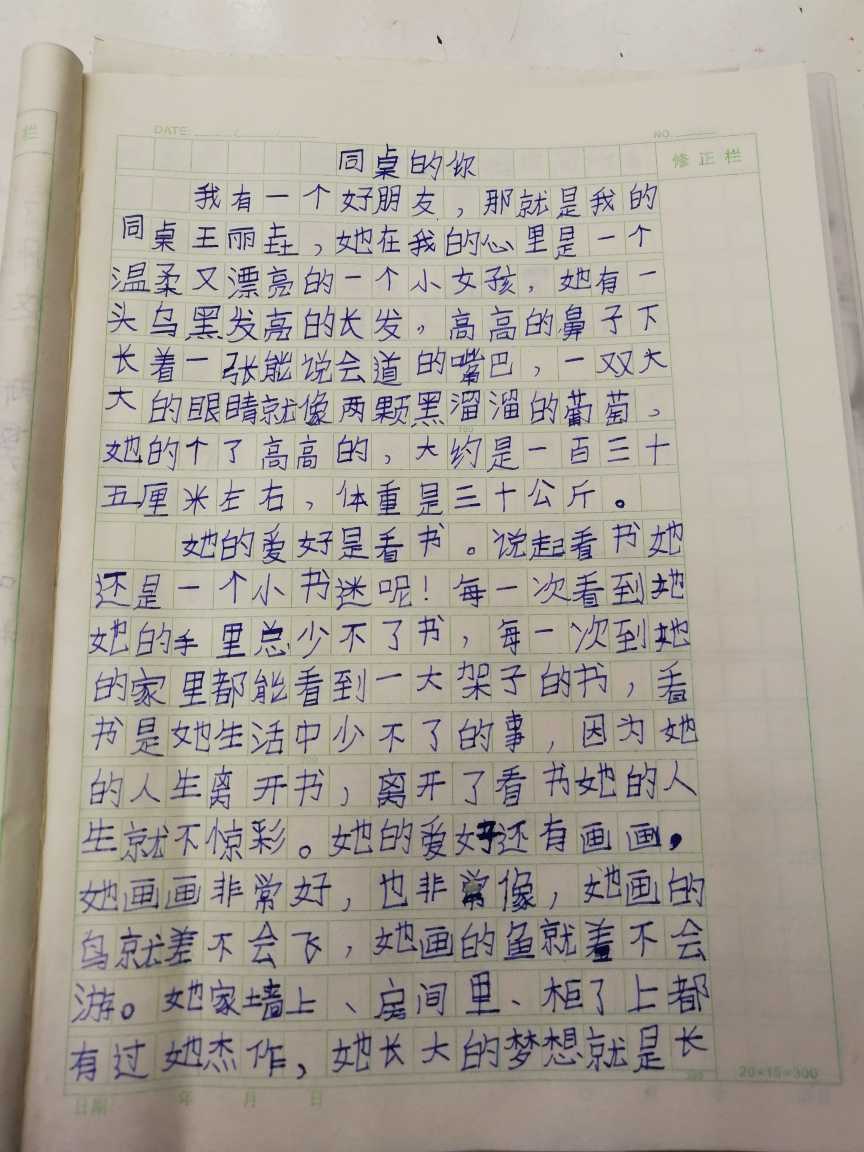 栏
DATE
NO.
修正栏
同桌的你
我有一个好朋友，那就是我的
同桌王丽垚，她在我的心里是一个
温柔又漂亮的一个小女孩，她有一
头乌黑发亮的长发，高高的鼻子下
长着一张能说会道的嘴巴，一双大
大的眼睛就像两颗黑溜溜的葡萄，
她的个了高高的，大约是一百三十
五厘米左右，体重是三十公斤。
她的爱好是看书。说起看书她
还是一个小书迷呢！每一次看到她
她的手里总少不了书，每一次到她
的家里都能看到一大架子的书，看
书是她生活中少不了的事，因为她
的人生离开书，离开了看书她的人
生就不惊彩。她的爱好还有画画，
她画画非常好，也非常像，她画的
鸟就差不会飞，她画的鱼就差不会
游。她家墙上、房间里、柜了上都
有过她杰作，她长大的梦想就是长
20×15=300
日期 年 月 日